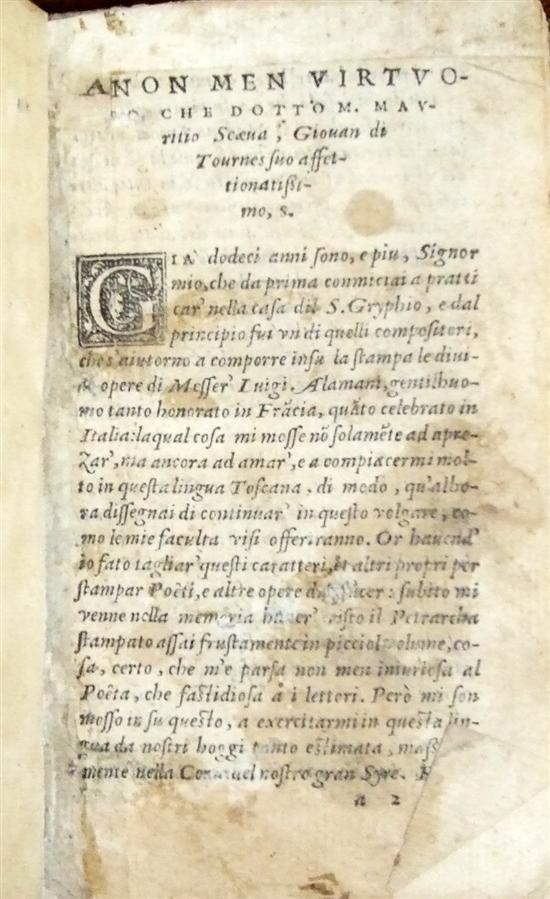 A NON MEN VIRTVO-
SO, CHE DOTTO M. MAV-
ritio Scæua, Giouan di
Tournes suo affet-
tionatissi-
mo, s.
GIA' dodeci anni sono, e piu, Signor
mio, che da prima cominciai a pratti
car' nella casa dil S. Gryphio, e dal
principio fui vn di quelli compositori,
che s'aiutorno a comporre insu la stampa le diui-
& opere di Messer' Luigi. Alamani, gentilhuo-
mo tanto honorato in Frācia, quāto celebrato in
Italia: laqual cosa mi mosse nō solamēte ad apre-
zar', ma ancora ad amar', e a compiacermi mol-
to in questa lingua Toscana, di modo, qu'alho-
ra dissegnai di continuar' in questo volgare, co-
mo le mie faculta visi offeriranno. Or hauend'
io fato tagliar' questi caratteri, & altri propri per
stampar Poëti, e altre opere subito mi
venne nella memoria hauer' visto il Petrarcha
stampato assai frustamente in picciol volume, co-
sa, certo, che m'e parsa non men iniuriosa al
Poëta, che fastidiosa a i lettori. Però mi son
mosso in su questo, a exercitarmi in questa lin-
gua da nostri hoggi tanto estimata, mass
mente nella nostro gran Syre.
a 2